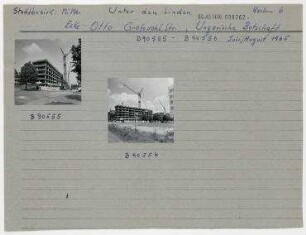 Stadtbezirk: Mitte Unter den Linden Berlin 6
Ecke Otto Grotewohl Str., Ungarische Botschaft
B 90555 - B 90556 Juli/August 1965
B 90555
B 90556